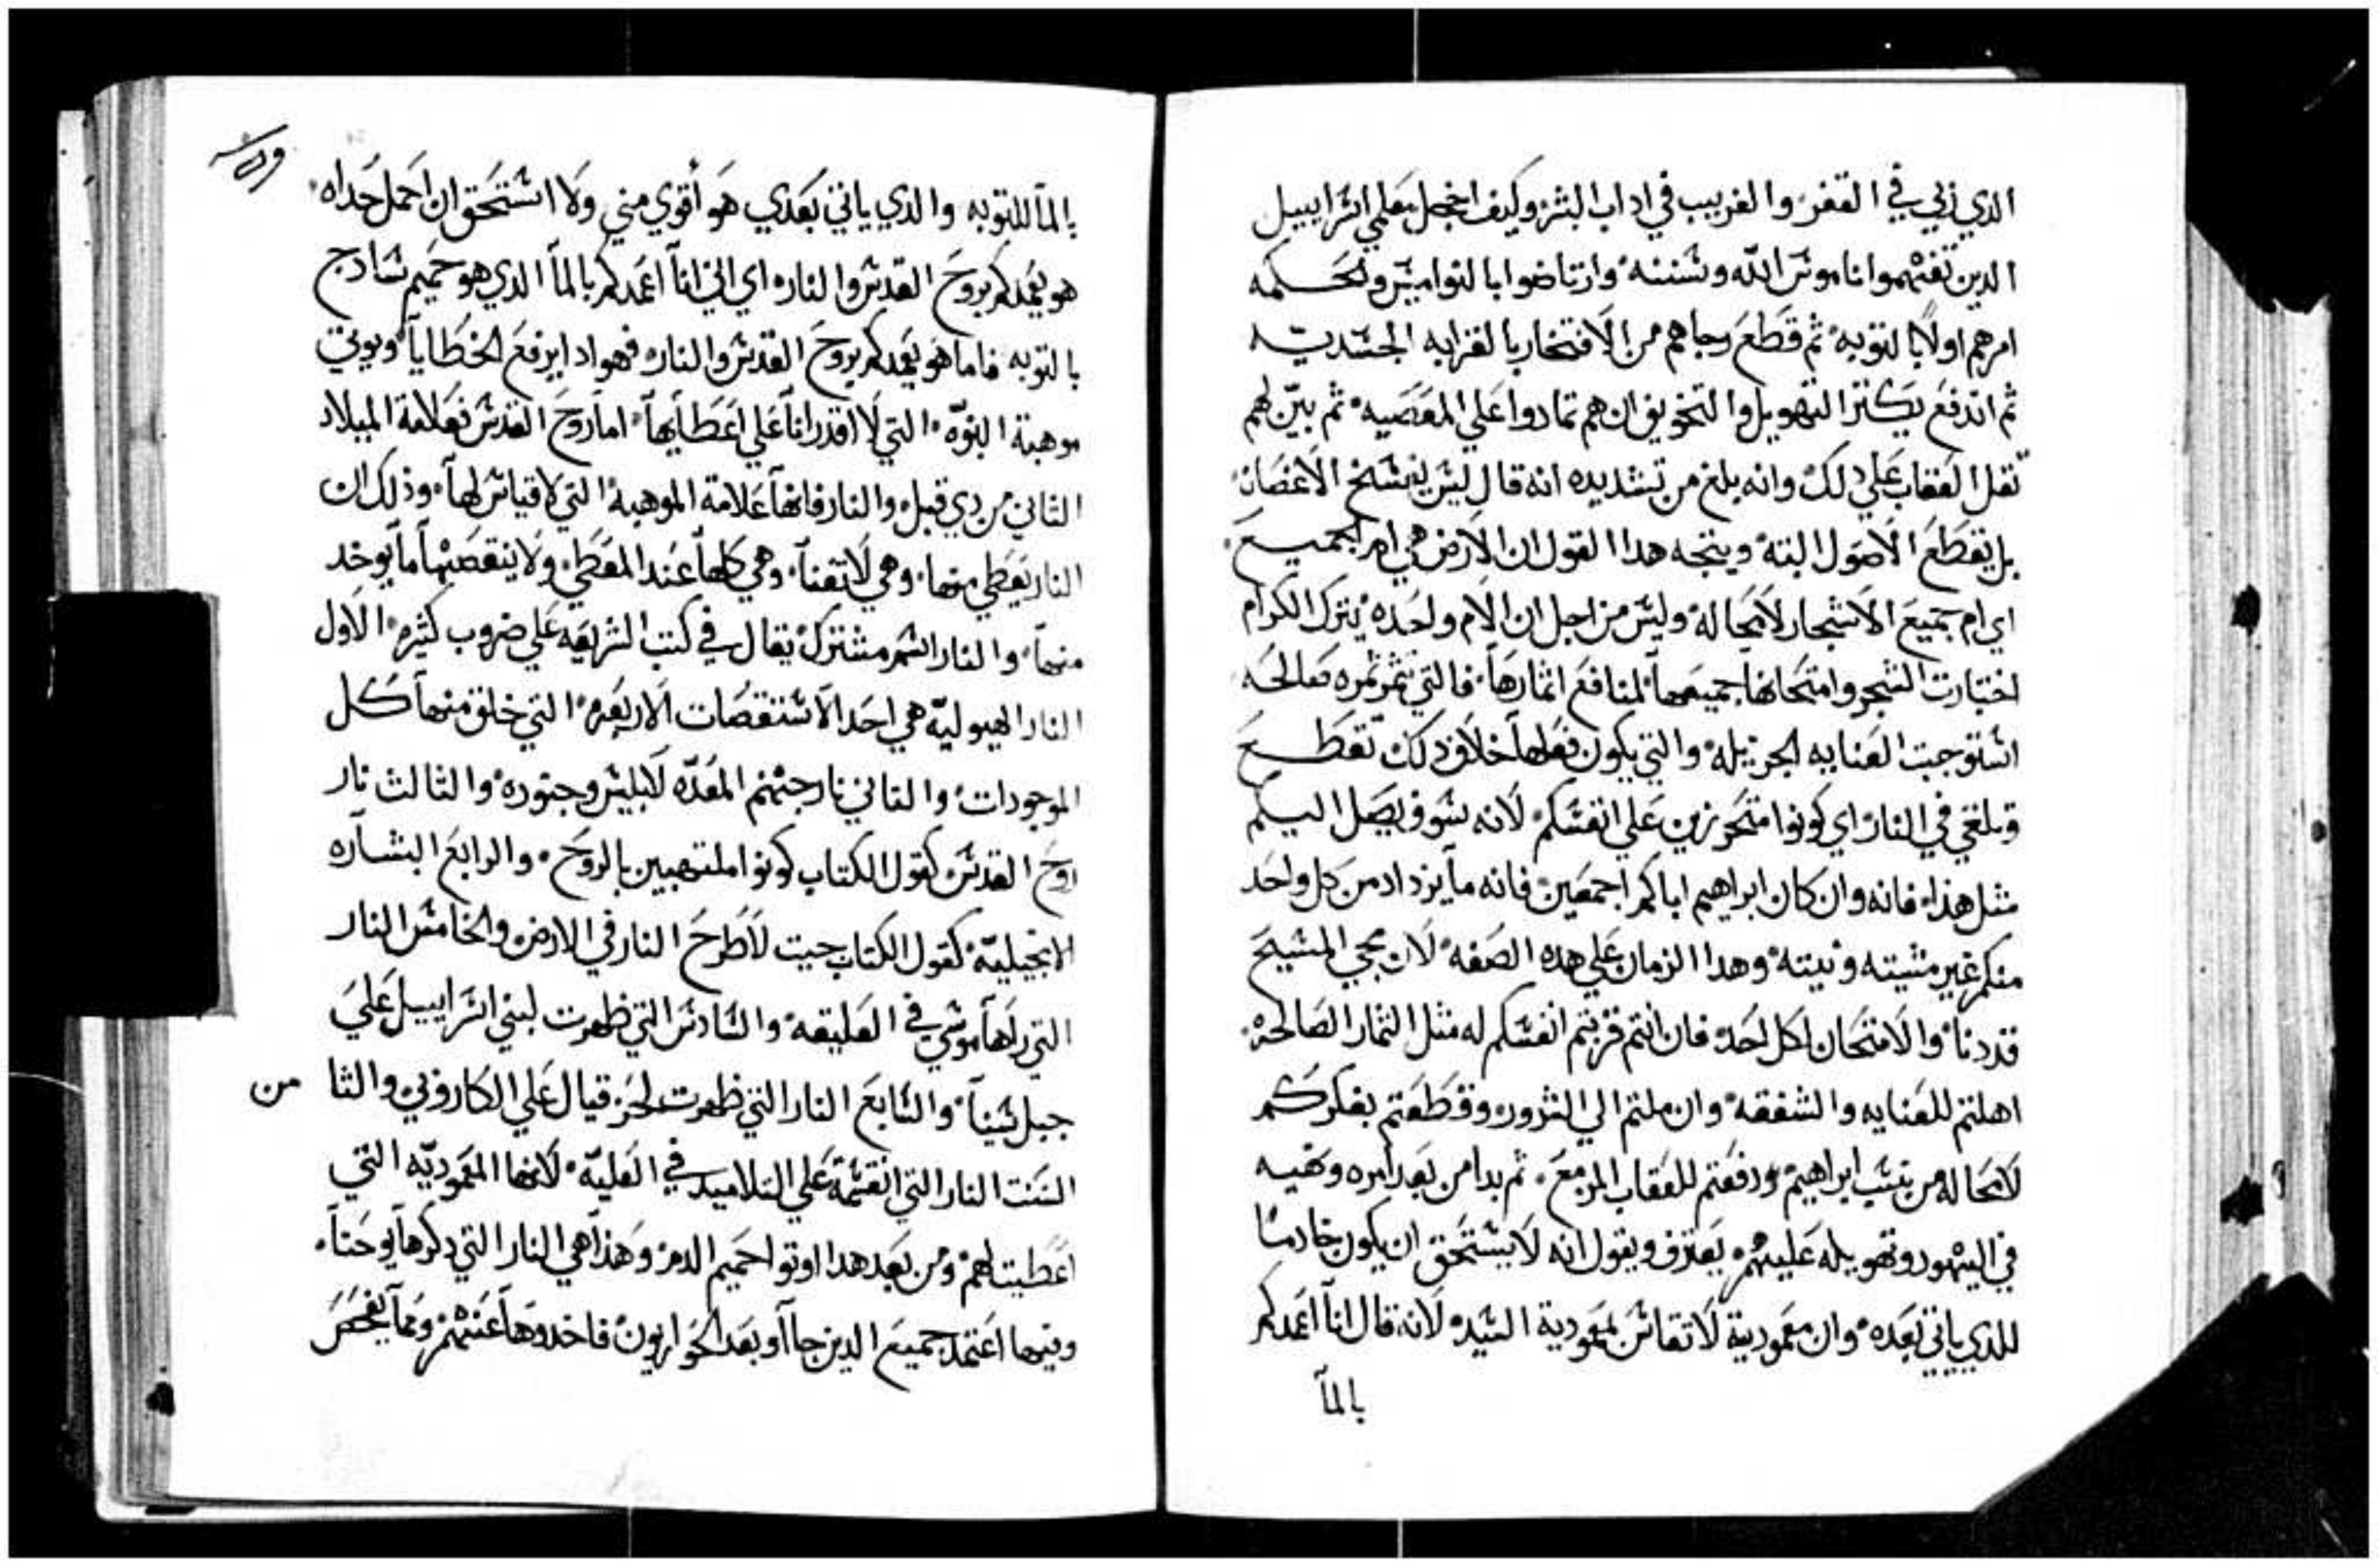 الدي زبي في القفر والغريب في اداب البشر وكيف اخجل معلمي اسراييل
الدين تفهموا ناموس الله وسننه وارتاضوا بالنواميس والحكمه
امرهم اولا بالتوبه ثم قطع رجاهم من الافتخار بالقرابه الجسديه
ثم اندفع يكثر التهويل والتخويف ان هم تمادوا على المعصيه ثم بين لهم
ثقل العقاب علي دلك وانه بلغ من تشديده انه قال ليس يفسخ الاغصان
بل يقطع الاصول البته ويتجه هدا القول ان الارض هي ام الجميع
اي ام جميع الاشجار لا محاله وليس من اجل ان الام واحده يترك الكرام
اختبارت الشجر وامتحانها جميعها لمنافع اثمارها فالتي تثمر ثمره صالحه
استوجبت العنايه الجزيله والتي يكون فعلها خلاف دلك تقطع
وتلقي في النار اي كونوا متحرزين علي انفسكم لانه سوف يصل اليكم
مثل هذا فانه وان كان ابراهيم اباكم اجمعين فانه ما يزداد من كل واحد
منكم غير مشيته ونيته وهدا الزمان علي هده الصفه لان مجي المسيح
قد دنا والامتحان لكل احد فان انتم قربتم انفسكم له مثل الثمار الصالحه
اهلتم للعنايه والشفقه وان ملتم الي الشرور وقطعتم بفكركم
لا محاله من نسب ابراهيم ودفعتم للعقاب المزمع ثم بدا من بعد امره ونهيه
في اليهود وتهويله عليهم يعترف ويقول انه لا يستحق ان يكون خادما
للدي ياتي بعده وان معموديته لا تقاس بمعمودية السيد لانه قال انا اعمدكم
بالما
بالما للتوبه والدي ياتي بعدي هو أقوي مني ولا استحق ان احمل حداه
هو يعمدكم بروح القدس والنار اي انني انا اعمدكم بالما الدي هو حميم سادج
بالتوبه فاما هو يعمدكم بروح القدس والنار فهو ادا يرفع الخطايا ويوتي
موهبة البنوه التي لا اقدر انا علي اعطايها اما روح القدس فعلامة الميلاد
الثاني من دي قبل والنار فانها علامة الموهبة التي لا قياس لها وذلك ان
النار يعطي منها وهي لا تفنا وهي كلها عند المعطي ولا ينقصها ما يوخد
منها والنار اسم مشترك يقال في كتب الشريعه علي ضروب كثيره الاول
النار الهيوليه هي احد الاستقصات الاربعه التي خلق منها كل
الموجودات والثاني نار جهنم المعده لابليس وجنوده والثالث نار
روح القدس كقول الكتاب كونوا ملتهبين بالروح والرابع البشاره
الانجيليه كقول الكتاب جيت لأطرح النار في الارض والخامس النار
التي راها موسي في العليقه والسادس التي ظهرت لبني اسراييل علي
جبل سينا والسابع النار التي ظهرت لحزقيال علي الكاروبي والثا من
السنت النار التي انقسمة علي التلاميد في العليه لانها المعموديه التي
اعطيت لهم ومن بعد هدا اوتوا حميم الدم وهذا هي النار التي دكرها يوحنا
وفيها اعتمد جميع الدين جاآو بعد الحواريون فاخدوها عنهم ومما يفحص